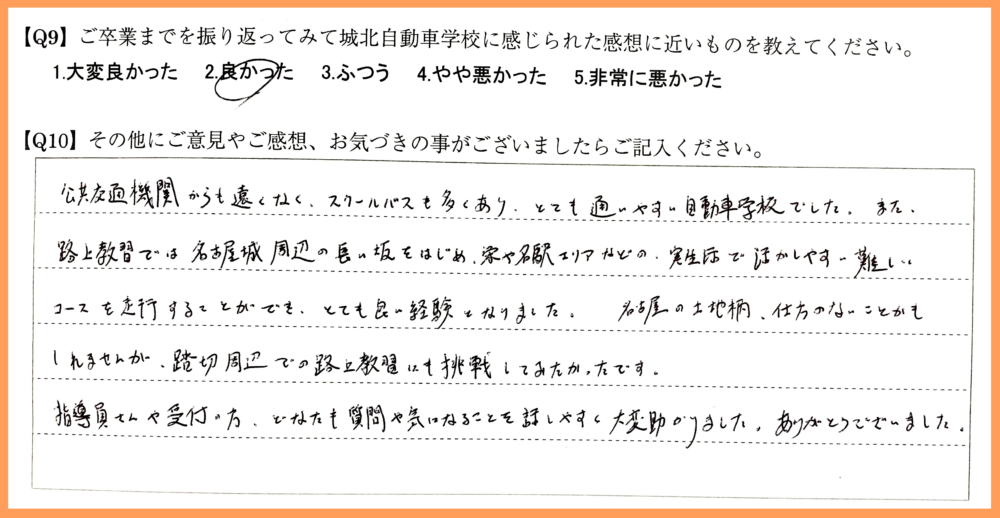 【Q9】ご卒業までを振り返ってみて城北自動車学校に感じられた感想に近いものを教えてください。
1.大変良かった 2.良かった 3.ふつう 4.やや悪かった 5.非常に悪かった
【Q10】その他にご意見やご感想、お気づきの事がございましたらご記入ください。
公共交通機関からも遠くなく、スクールバスも多くあり、とても通いやすい自動車学校でした。また、
路上教習では名古屋城周辺の長い坂をはじめ、栄や名駅エリアなどの、実生活で活かしやすい難しい
コースを走行することができ、とても良い経験となりました。 名古屋の土地柄、仕方のないことかも
しれませんが、踏切周辺での路上教習にも挑戦してみたかったです。
指導員さんや受付の方、どなたも質問や気になることを話しやすく大変助かりました。ありがとうございました。